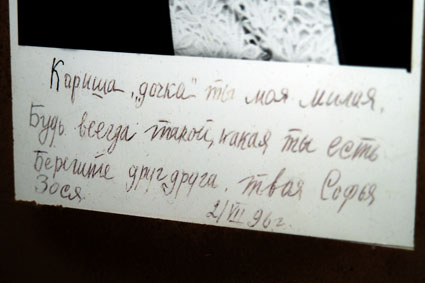 Кариша, "дочка" ты моя милая,
Будь всегда такой, какая ты есть
Берегите друг друга. твая Софья
Зося
2/VII 96г.